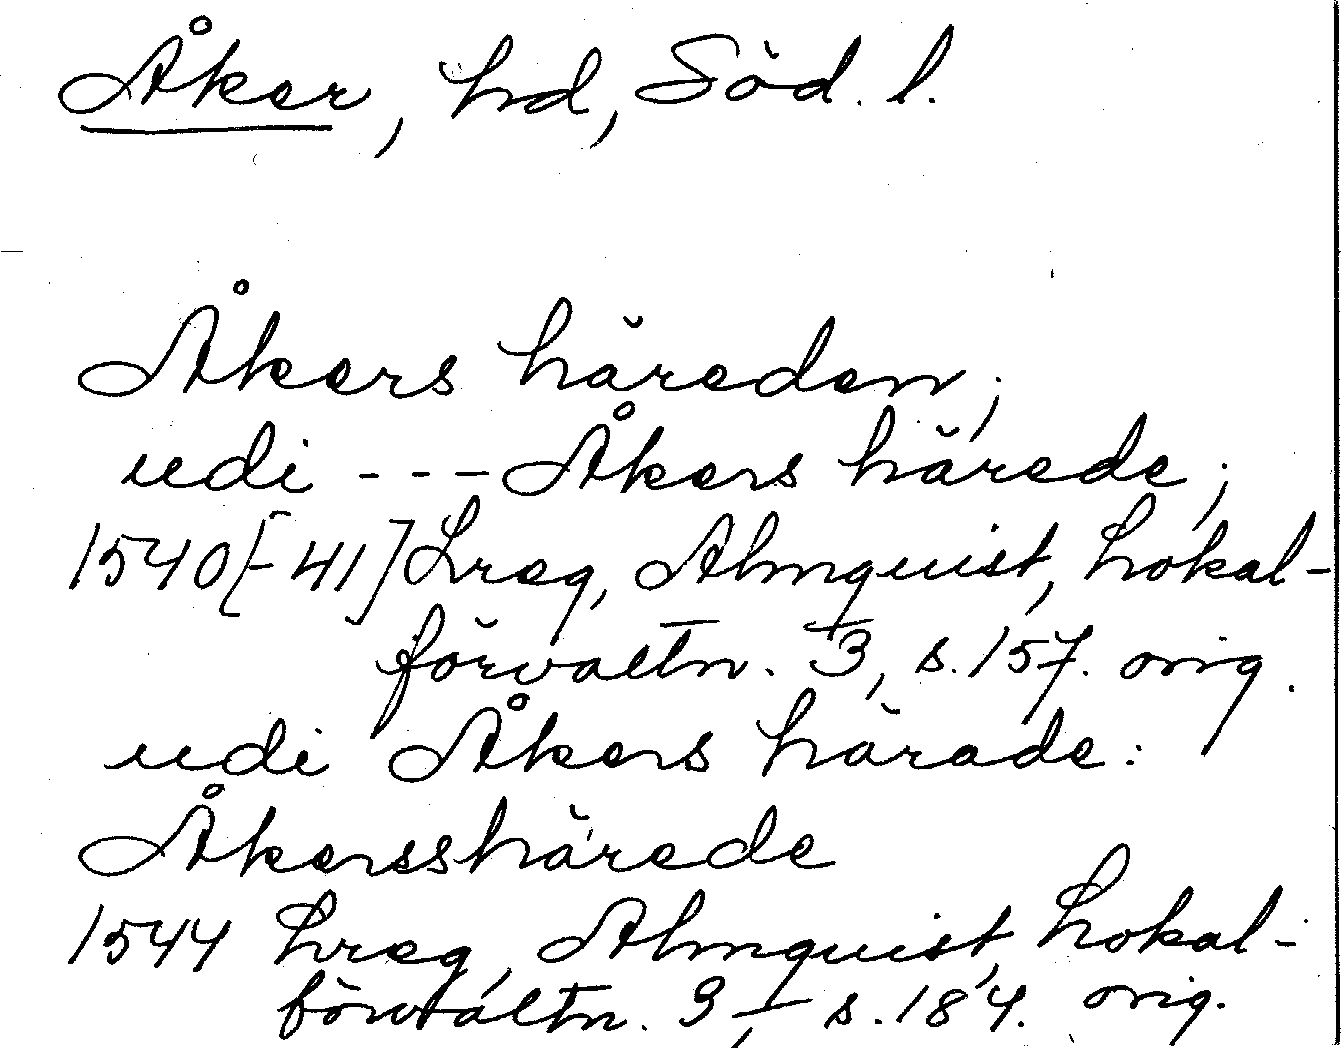 Åker, hd, Söd. l.
Åkers häreden,;
udi --- Åkers härede;
1540[-41] Lreg, Almquist, Lokal-
förvaltn. 3, s. 157. orig.
udi Åkers härade:
Åkersshärede
1544 Lreg, Almquist, Lokal-
förvaltn. 3, s. 184. orig.